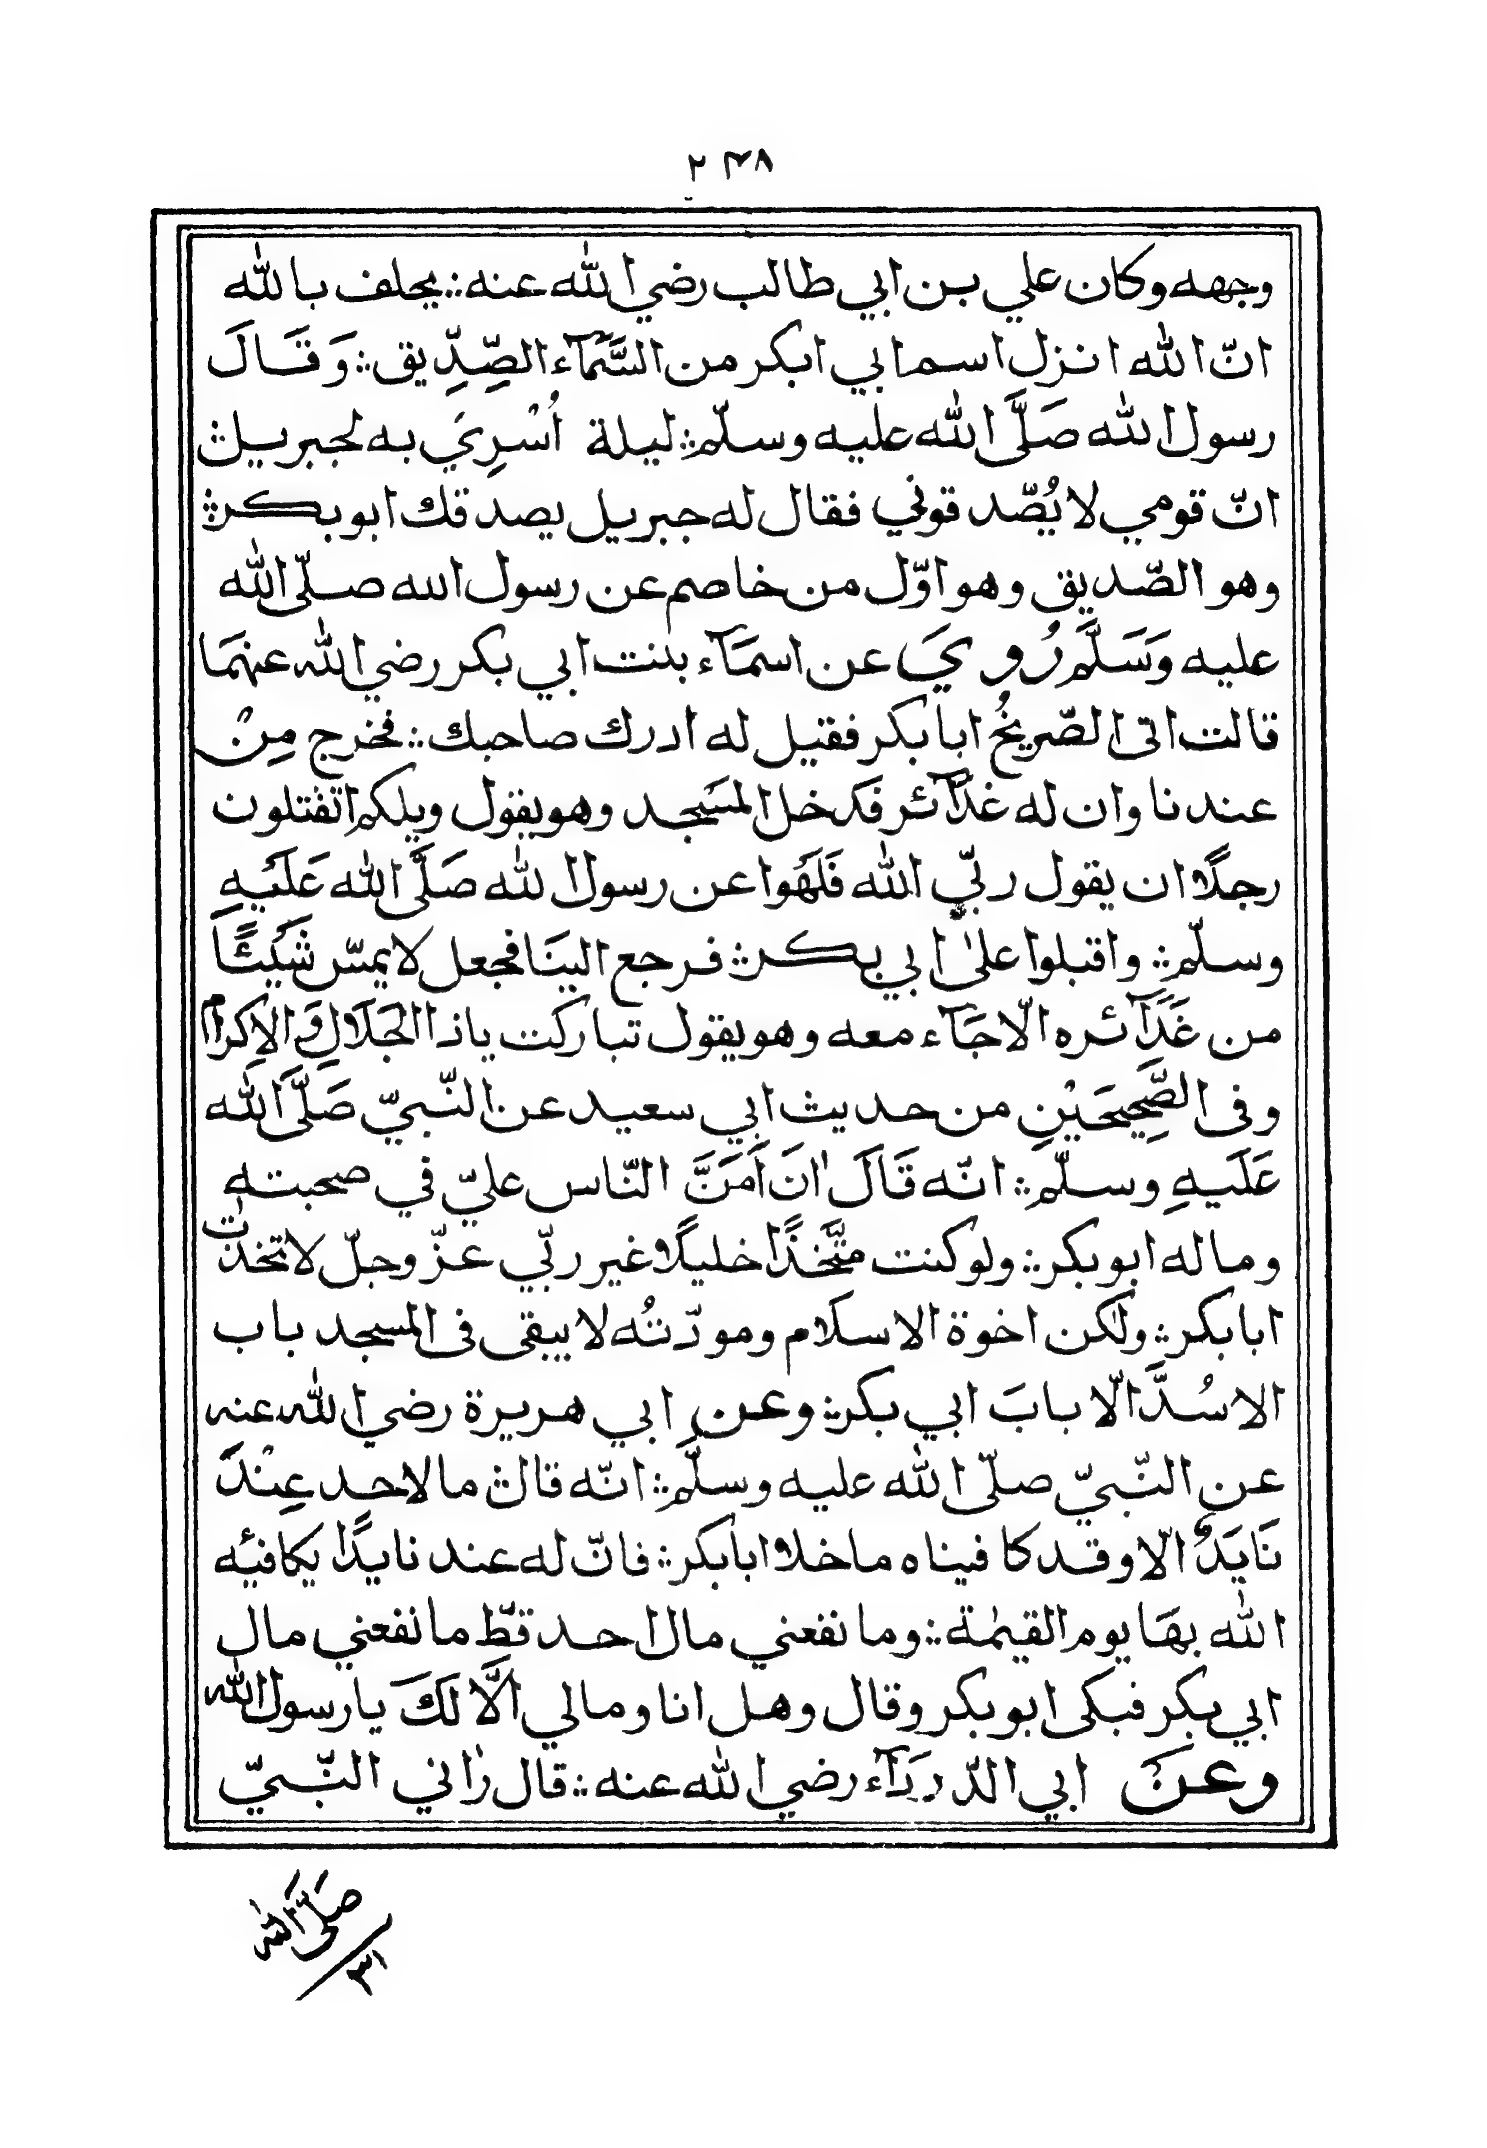 ٢٤٨
وجهه وكان علي بن ابي طالب رضي الله عنه ؞ يحلف بالله
انّ الله انزل اسم ابي ابكر من السَّمَآء الصِّدِّيق ؞ وَقَالَ
رسول الله صَلَّى الله عليه وسلّم ؞ ليلة اُسْرِيَ به لجبريل ؞
انّ قومي لا يُصّدقوني فقال له جبريل يصدقك ابوبكر ؞
وهو الصّديق وهو اوّل من خاصم عن رسول الله صلّى الله
عليه وَسَلَّم رُوِيَ عن اسمَآء بنت ابي بكر رضي الله عنهمَا
قالت اتى الصّريخُ ابا بكر فقيل له ادرك صاحبك ؞ فخرج مِنْ
عندنا وان له غدَآئر فَدخل المسَجد وهو يقول ويلكم اتقتلون
رجلًا ان يقول ربّي الله فَلَهَوا عن رسول الله صَلَّى الله عَلَيْهِ
وسلّم ؞ واقبلوا علىٰ ابي بكر ؞ فرجع الينَا فجعل لا يمسّ شَيْئًا
من غَدَآئره الّا جَآء معه وهو يقول تباركت ياذا الجَلَالِ وَ الاِكرام
وفى الصَّحِيحَيْنِ من حديث ابي سعيد عن النّبيّ صَلَّى الله
عَلَيهِ وسلّم ؞ انّه قَالَ انَ اَمَنَّ النّاس عليّ في صحبته
وماله ابوبكر ؞ ولو كنت متَّخذًا خليلًا غير ربّي عزّ وجلّ لاتخذت
ابا بكر ؞ ولٰكن اخوة الاسلَام ومودّتُه لا يبقى فى المسجد باب
الا سُدَّ الّا بابَ ابي بكر ؞ وعن ابي هريرة رضي الله عنه
عن النّبيّ صلّى الله عليه وسلّم ؞ انّه قال ؞ ما لاحد عِنْدَ
نَا يَدٌ الّا وقد كافيناه ما خلا ابابكر ؞ فانّ له عندنا يدًا يكافيُه
الله بهَا يوم القيٰمة ؞ وما نفعني مال احد قطّ ما نفعني مال
ابي بكر فبكى ابوبكر وقال وهل انا ومالي الَّا لكَ يا رسول الله
وعنْ ابي الدّردَآء رضي الله عنه ؞ قال رٰاني النّبيّ
صَلَّى الله
٣١